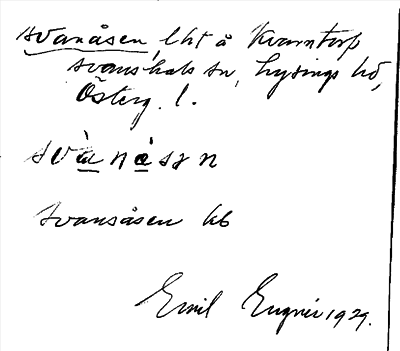 Svanåsen, lht å Kvarntorp
Svanshals sn, Lysings hd,
Österg. l.
svànåsən
Svansåsen kb
Emil 1929.